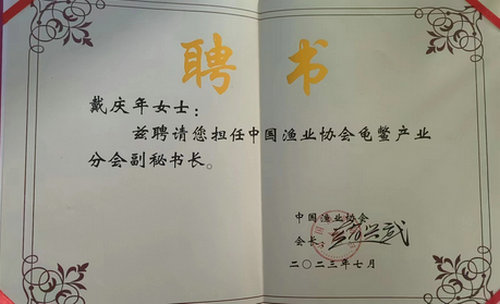 聘书
戴庆年女士：
兹聘请您担任中国渔业协会龟鳖产业
分会副秘书长。
中国渔业协会
会长：
二〇二三年七月